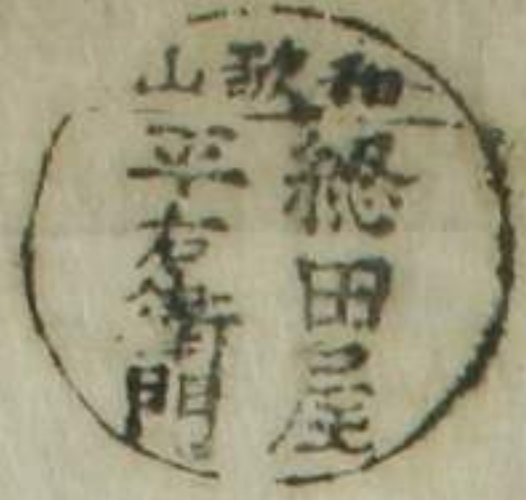 和歌山
總田屋
平右衛門